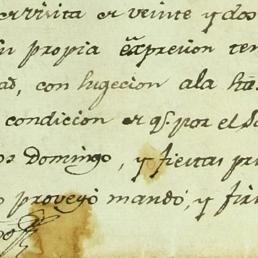 en veinte y dos
propia expresion ten
con sugecion a la
condicion er q.e por el
Domingo, y fiestas
proveyó mandó, y fir